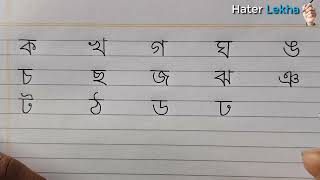 Hater Lekha
ক খ গ ঘ ঙ
চ ছ জ ঝ ঞ
ট ঠ ড ঢ